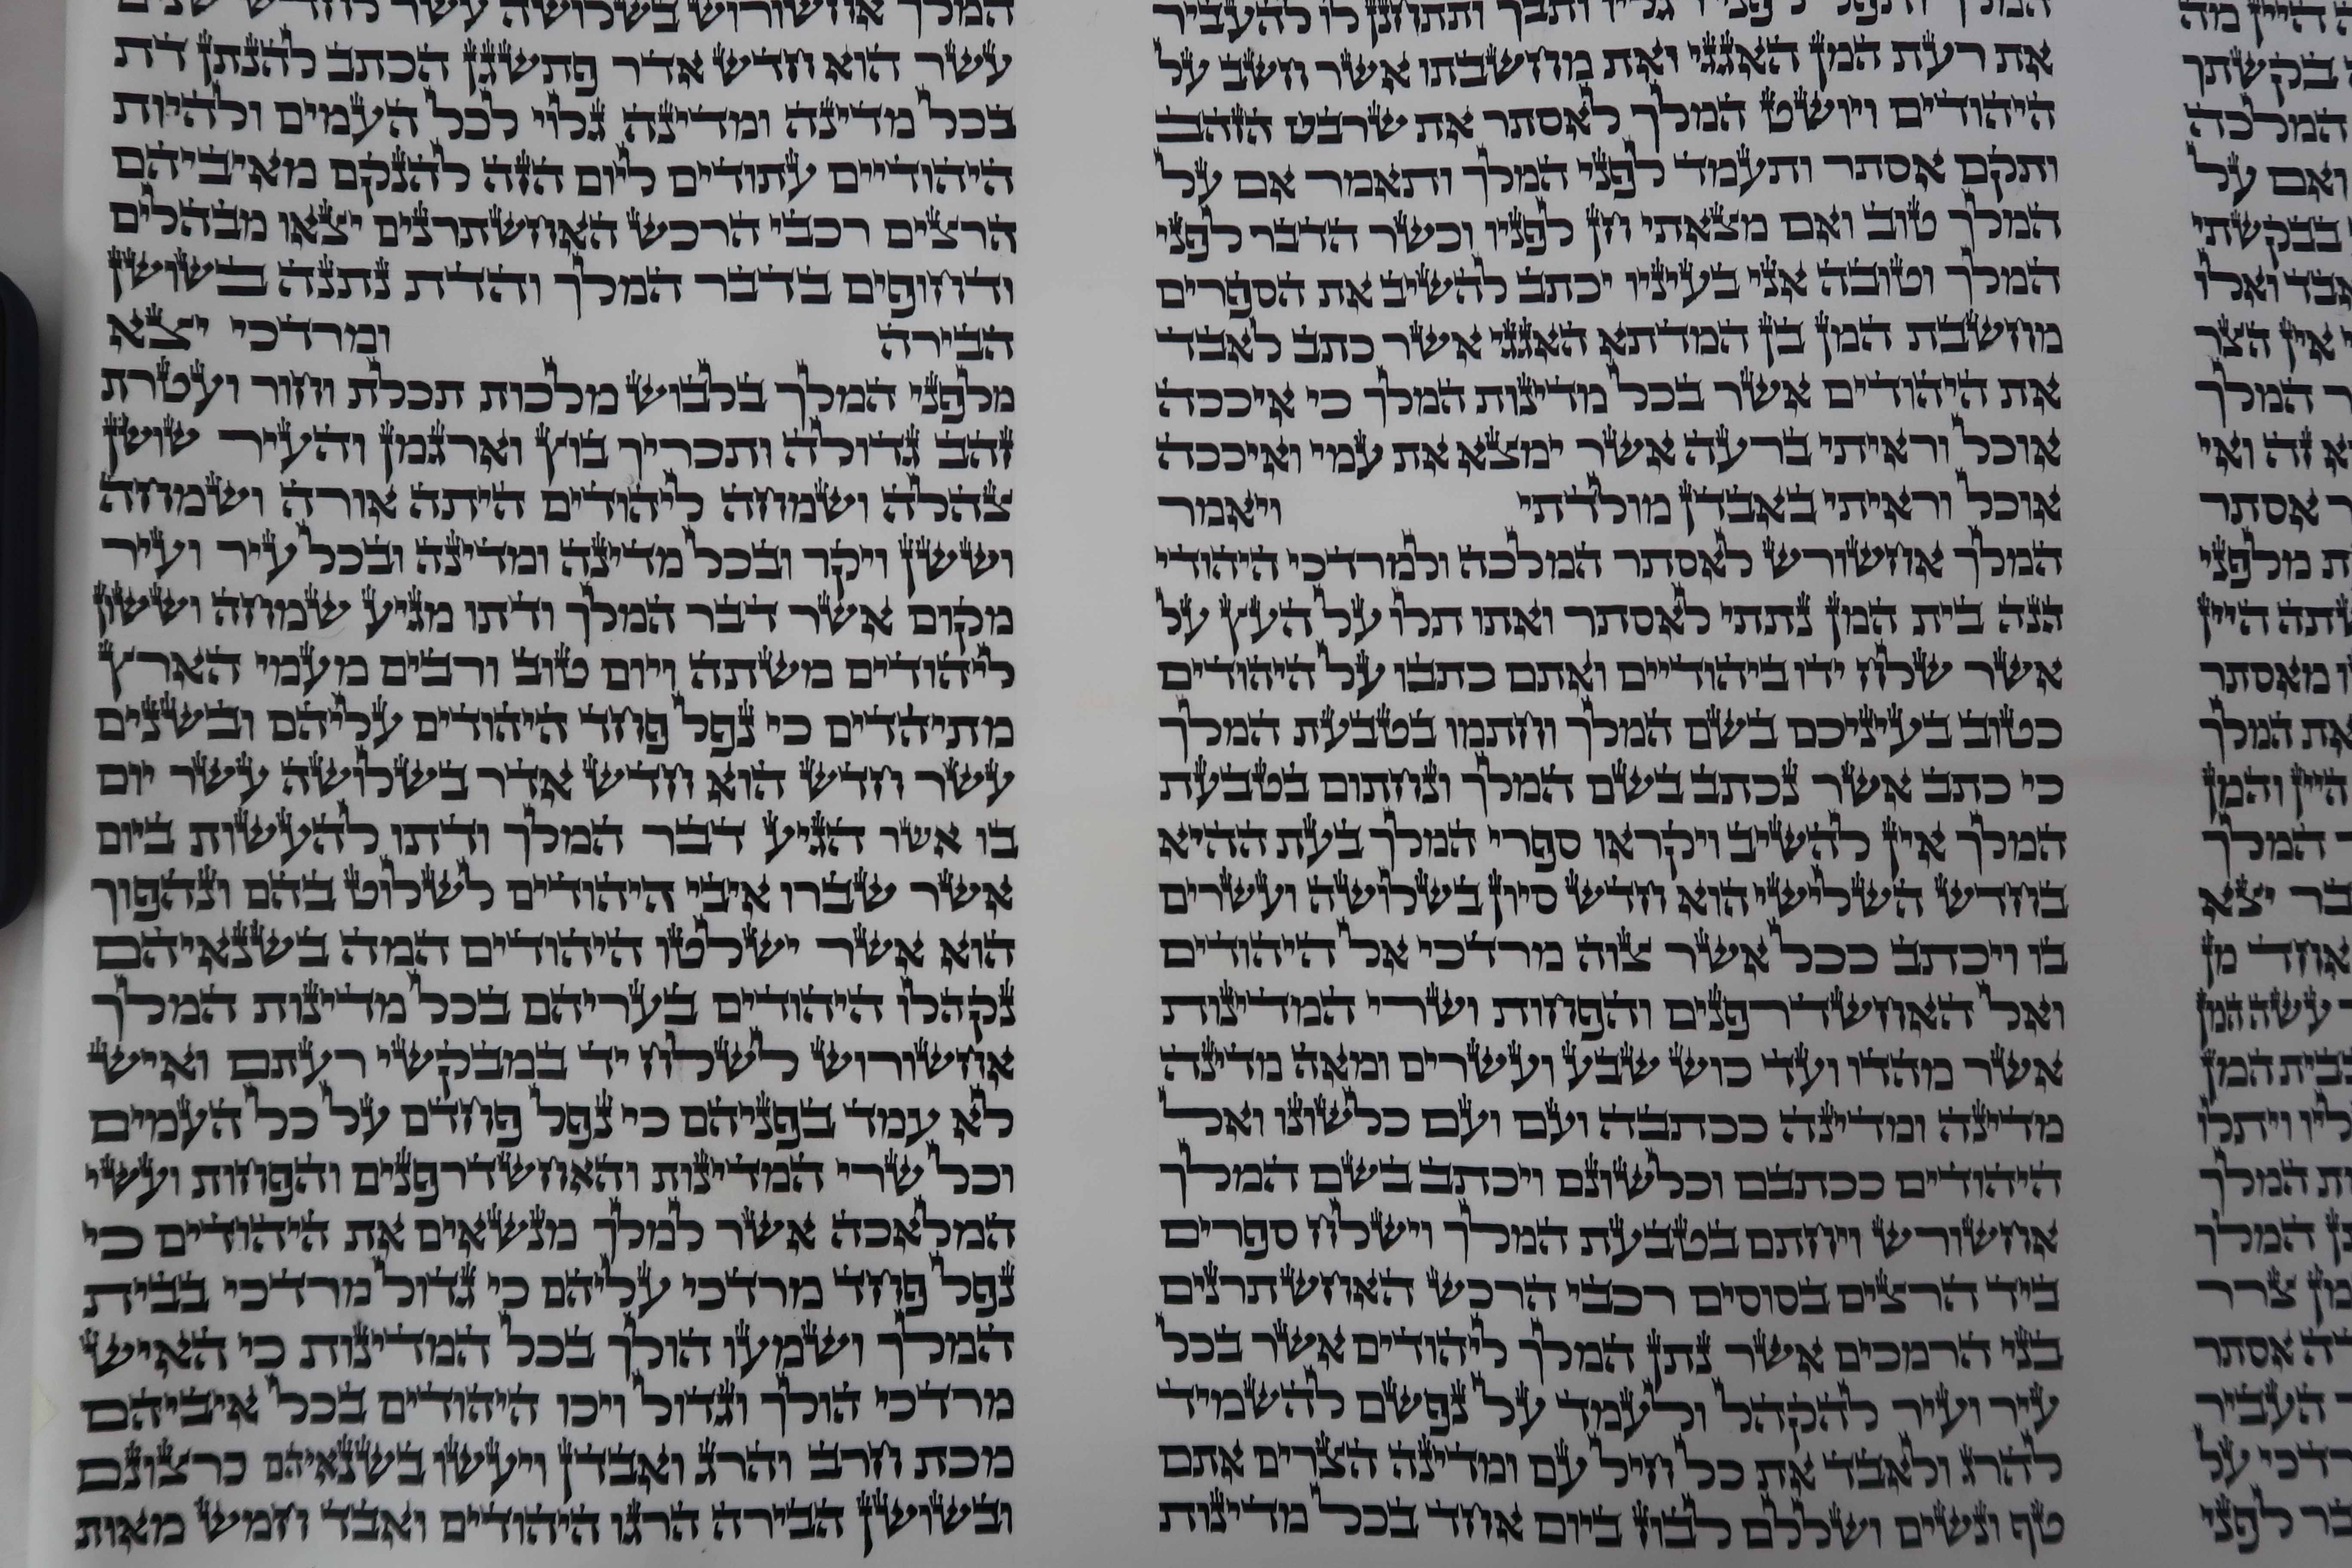 היין מה
בקשתך
המלכה
ואם על
בבקשתי
ואלו
אין הצר
המלך
זה ואי
אסתר
מלפני
היין
מאסתר
את המלך
היין והמן
המלך
יצא
אחד מן
עשה המן
המן
ויתלו
המלך
המלך
צרר
אסתר
העביר
על
לפני
המלך ותפל לפני רגליו ותבך ותתחנן לו להעביר
את רעת המן האגגי ואת מחשבתו אשר חשב על
היהודים ויושט המלך לאסתר את שרבט הזהב
ותקם אסתר ותעמד לפני המלך ותאמר אם על
המלך טוב ואם מצאתי חן לפניו וכשר הדבר לפני
המלך וטובה אני בעיניו יכתב להשיב את הספרים
מחשבת המן בן המדתא האגגי אשר כתב לאבד
את היהודים אשר בכל מדינות המלך כי איככה
אוכל וראיתי ברעה אשר ימצא את עמי ואיככה
אוכל וראיתי באבדן מולדתי ויאמר
המלך אחשורש לאסתר המלכה ולמרדכי היהודי
הנה בית המן נתתי לאסתר ואתו תלו על העץ על
אשר שלח ידו ביהודיים ואתם כתבו על היהודים
כטוב בעיניכם בשם המלך וחתמו בטבעת המלך
כי כתב אשר נכתב בשם המלך ונחתום בטבעת
המלך אין להשיב ויקראו ספרי המלך בעת ההיא
בחדש השלישי הוא חדש סיון בשלושה ועשרים
בו ויכתב ככל אשר צוה מרדכי אל היהודים
ואל האחשדרפנים והפחות ושרי המדינות
אשר מהדו ועד כוש שבע ועשרים ומאה מדינה
מדינה ומדינה ככתבה ועם ועם כלשונו ואל
היהודים ככתבם וכלשונם ויכתב בשם המלך
אחשורש ויחתם בטבעת המלך וישלח ספרים
ביד הרצים בסוסים רכבי הרכש האחשתרנים
בני הרמכים אשר נתן המלך ליהודים אשר בכל
עיר ועיר להקהל ולעמד על נפשם להשמיד
להרג ולאבד את כל חיל עם ומדינה הצרים אתם
טף ונשים ושללם לבוז ביום אחד בכל מדינות
המלך אחשורוש בשלושה עשר לחדש שנים
עשר הוא חדש אדר פתשגן הכתב להנתן דת
בכל מדינה ומדינה גלוי לכל העמים ולהיות
היהודיים עתודים ליום הזה להנקם מאיביהם
הרצים רכבי הרכש האחשתרנים יצאו מבהלים
ודחופים בדבר המלך והדת נתנה בשושן
הבירה ומרדכי יצא
מלפני המלך בלבוש מלכות תכלת וחור ועטרת
זהב גדולה ותכריך בוץ וארגמן והעיר שושן
צהלה ושמחה ליהודים היתה אורה ושמחה
וששן ויקר ובכל מדינה ומדינה ובכל עיר ועיר
מקום אשר דבר המלך ודתו מגיע שמחה וששון
ליהודים משתה ויום טוב ורבים מעמי הארץ
מתיהדים כי נפל פחד היהודים עליהם ובשנים
עשר חדש הוא חדש אדר בשלושה עשר יום
בו אשר הגיע דבר המלך ודתו להעשות ביום
אשר שברו איבי היהודים לשלוט בהם ונהפוך
הוא אשר ישלטו היהודים המה בשנאיהם
נקהלו היהודים בעריהם בכל מדינות המלך
אחשורוש לשלח יד במבקשי רעתם ואיש
לא עמד בפניהם כי נפל פחדם על כל העמים
וכל שרי המדינות והאחשדרפנים והפחות ועשי
המלאכה אשר למלך מנשאים את היהודים כי
נפל פחד מרדכי עליהם כי גדול מרדכי בבית
המלך ושמעו הולך בכל המדינות כי האיש
מרדכי הולך וגדול ויכו היהודים בכל איביהם
מכת חרב והרג ואבדן ויעשו בשנאיהם כרצונם
ובשושן הבירה הרגו היהודים ואבד חמש מאות